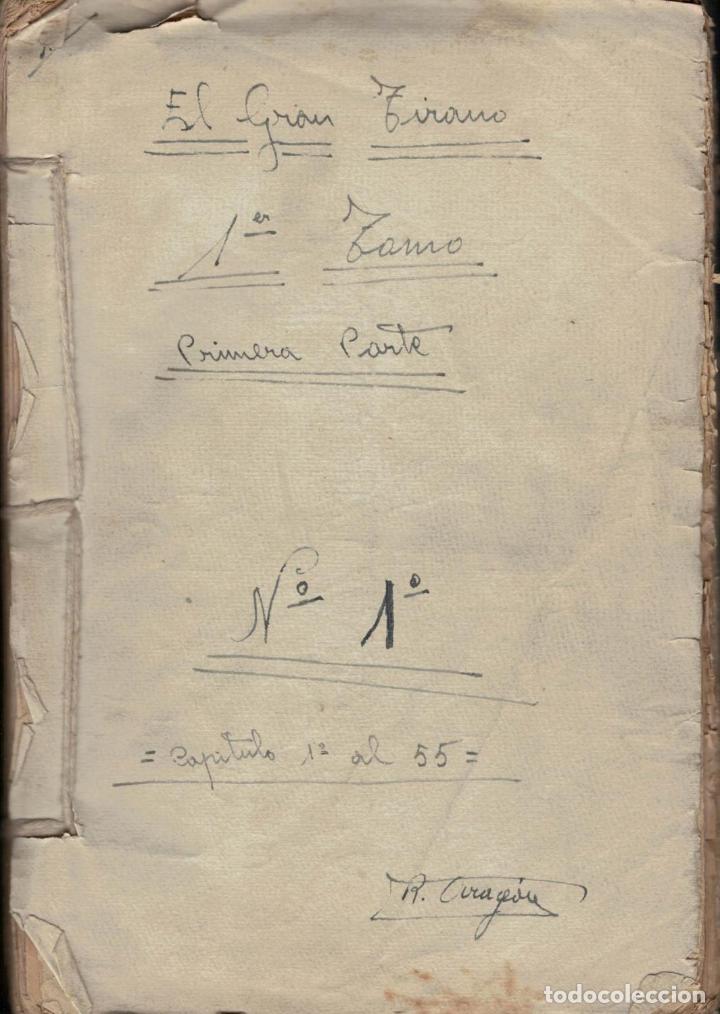 El Gran Tirano
1er Tomo
Primera Parte
Nº 1º
= Capitulo 1º al 55 =
R. Aragón
todocoleccion